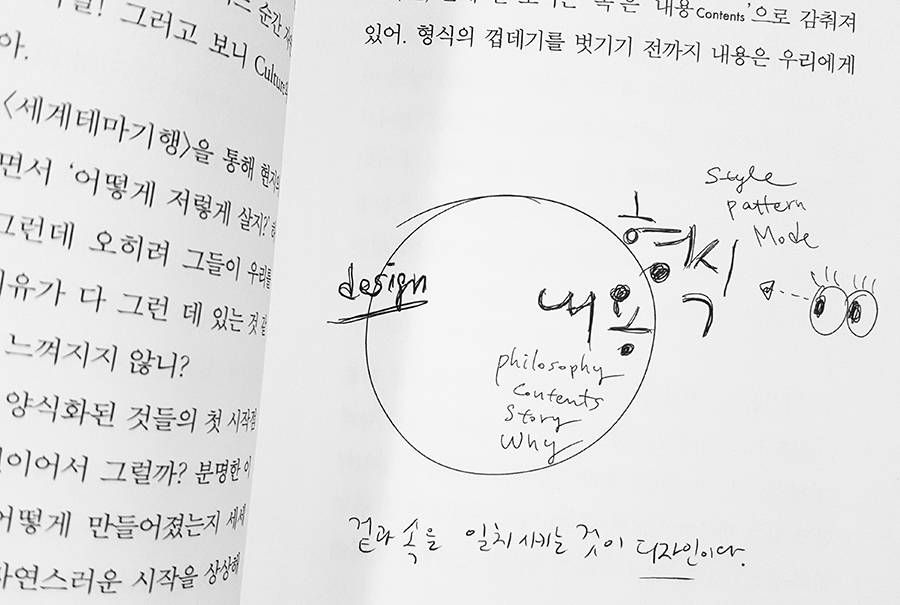 순간
! 그러고 보니 Culture
아.
〈세계테마기행〉을 통해 현지
면서 ‘어떻게 저렇게 살지?’
그런데 오히려 그들이 우리를
이유가 다 그런 데 있는 것
느껴지지 않니?
양식화된 것들의 첫 시작점
이어서 그럴까? 분명한 이
어떻게 만들어졌는지 세세
자연스러운 시작을 상상해
내용Contents’으로 감춰져
있어. 형식의 껍데기를 벗기기 전까지 내용은 우리에게
style
pattern
Mode
형식
design
내용
philosophy
contents
story
why
겉과 속을 일치 시키는 것이 디자인이다.